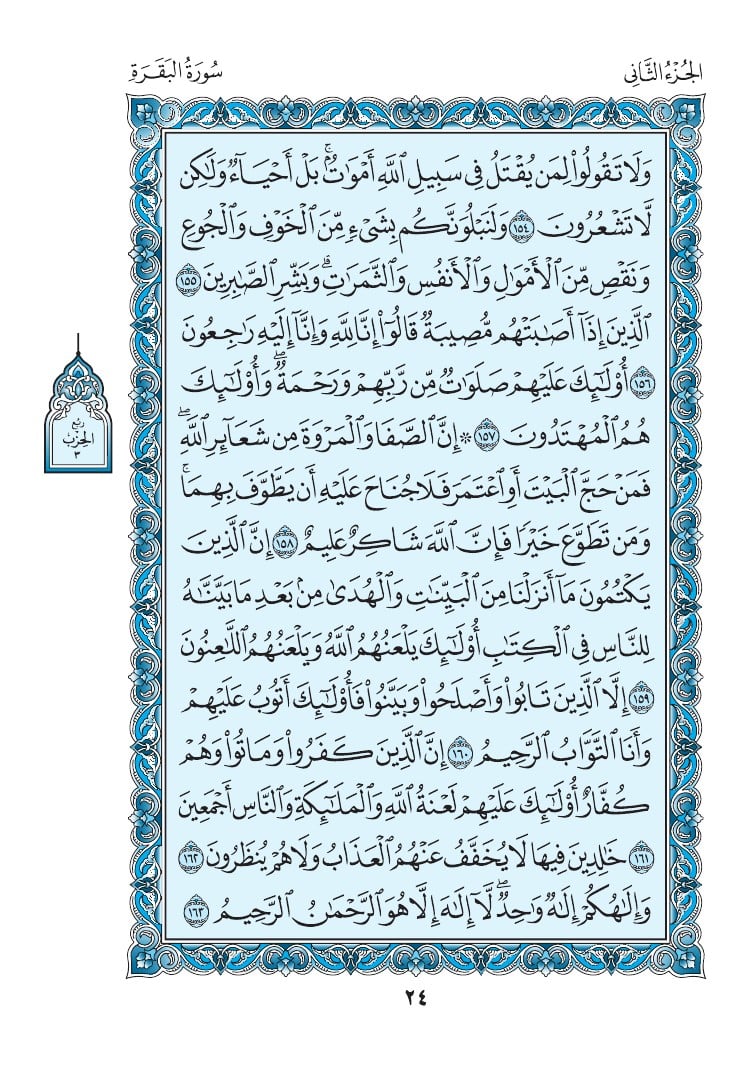 الجُزْءُ الثَّانِي
سُورَةُ البَقَرَةِ
وَلَا تَقُولُوا۟ لِمَن يُقْتَلُ فِى سَبِيلِ ٱللَّهِ أَمْوَٰتٌۢ ۚ بَلْ أَحْيَآءٌ وَلَـٰكِن
لَّا تَشْعُرُونَ ١٥٤ وَلَنَبْلُوَنَّكُم بِشَىْءٍ مِّنَ ٱلْخَوْفِ وَٱلْجُوعِ
وَنَقْصٍ مِّنَ ٱلْأَمْوَٰلِ وَٱلْأَنفُسِ وَٱلثَّمَرَٰتِ ۗ وَبَشِّرِ ٱلصَّـٰبِرِينَ ١٥٥
ٱلَّذِينَ إِذَآ أَصَـٰبَتْهُم مُّصِيبَةٌ قَالُوٓا۟ إِنَّا لِلَّهِ وَإِنَّآ إِلَيْهِ رَٰجِعُونَ
١٥٦ أُو۟لَـٰٓئِكَ عَلَيْهِمْ صَلَوَٰتٌ مِّن رَّبِّهِمْ وَرَحْمَةٌ ۖ وَأُو۟لَـٰٓئِكَ
هُمُ ٱلْمُهْتَدُونَ ١٥٧ ۞ إِنَّ ٱلصَّفَا وَٱلْمَرْوَةَ مِن شَعَآئِرِ ٱللَّهِ ۖ
فَمَنْ حَجَّ ٱلْبَيْتَ أَوِ ٱعْتَمَرَ فَلَا جُنَاحَ عَلَيْهِ أَن يَطَّوَّفَ بِهِمَا ۚ
وَمَن تَطَوَّعَ خَيْرًا فَإِنَّ ٱللَّهَ شَاكِرٌ عَلِيمٌ ١٥٨ إِنَّ ٱلَّذِينَ
يَكْتُمُونَ مَآ أَنزَلْنَا مِنَ ٱلْبَيِّنَـٰتِ وَٱلْهُدَىٰ مِنۢ بَعْدِ مَا بَيَّنَّـٰهُ
لِلنَّاسِ فِى ٱلْكِتَـٰبِ أُو۟لَـٰٓئِكَ يَلْعَنُهُمُ ٱللَّهُ وَيَلْعَنُهُمُ ٱللَّـٰعِنُونَ
١٥٩ إِلَّا ٱلَّذِينَ تَابُوا۟ وَأَصْلَحُوا۟ وَبَيَّنُوا۟ فَأُو۟لَـٰٓئِكَ أَتُوبُ عَلَيْهِمْ
وَأَنَا ٱلتَّوَّابُ ٱلرَّحِيمُ ١٦٠ إِنَّ ٱلَّذِينَ كَفَرُوا۟ وَمَاتُوا۟ وَهُمْ
كُفَّارٌ أُو۟لَـٰٓئِكَ عَلَيْهِمْ لَعْنَةُ ٱللَّهِ وَٱلْمَلَـٰٓئِكَةِ وَٱلنَّاسِ أَجْمَعِينَ
١٦١ خَـٰلِدِينَ فِيهَا لَا يُخَفَّفُ عَنْهُمُ ٱلْعَذَابُ وَلَا هُمْ يُنظَرُونَ ١٦٢
وَإِلَـٰهُكُمْ إِلَـٰهٌ وَٰحِدٌ ۖ لَّآ إِلَـٰهَ إِلَّا هُوَ ٱلرَّحْمَـٰنُ ٱلرَّحِيمُ ١٦٣
ربع
الحزب
٣
٢٤